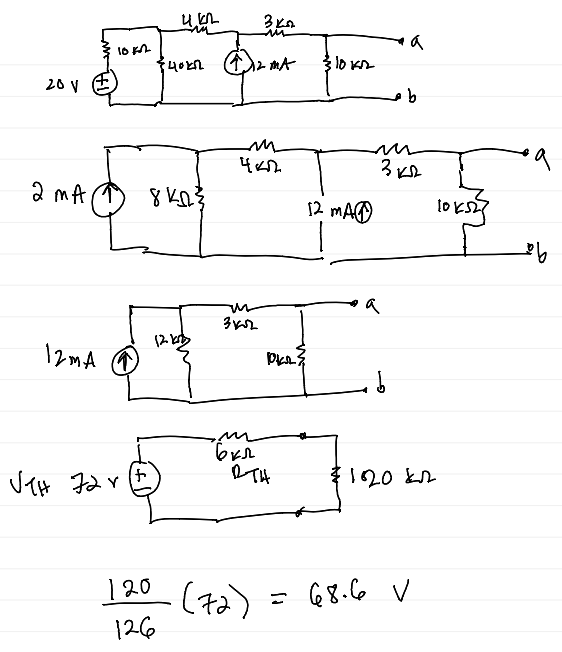 4 kΩ 3 kΩ
10 kΩ 40 kΩ 12 mA 10 kΩ a
20 V + b
4 kΩ 3 kΩ a
2 mA 8 kΩ 12 mA 10 kΩ
b
3 kΩ a
12 mA 12 kΩ 10 kΩ
b
6 kΩ
V TH 72 V + R TH 120 kΩ
120/126 (72) = 68.6 V